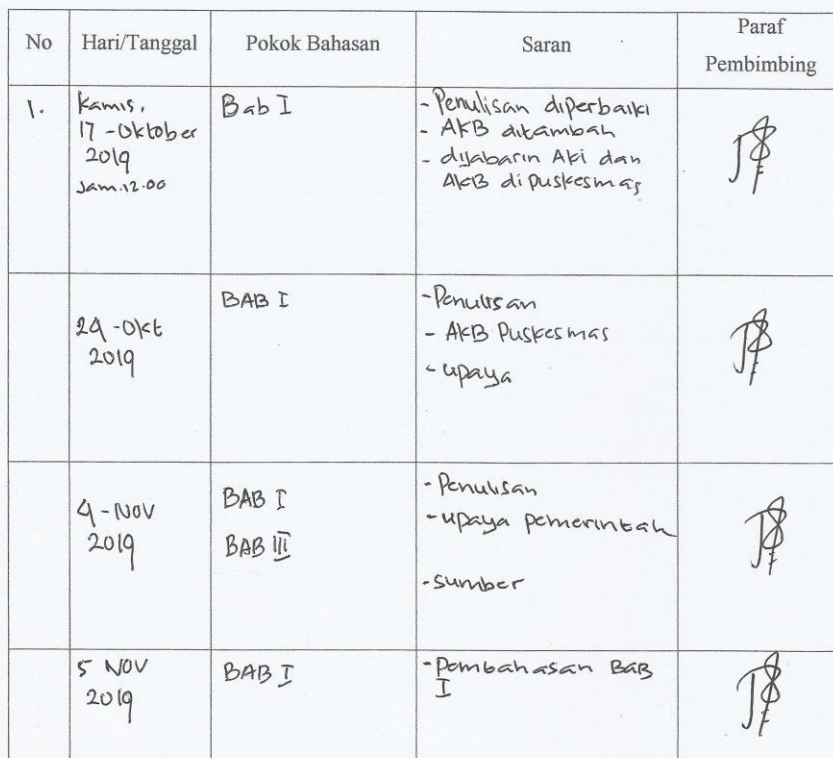 No Hari/Tanggal Pokok Bahasan Saran Paraf Pembimbing
1.
Kamis,
17 - Oktober
2019
Jam.12.00
Bab I
- Penulisan diperbaiki
- AKB ditambah
- dijabarin AKi dan
AKB di Puskesmas
24 - Okt
2019
BAB I
- Penulisan
- AKB Puskesmas
- upaya
4 - NOV
2019
BAB I
BAB III
- Penulisan
- upaya pemerintah
- sumber
5 NOV
2019
BAB I
- Pembahasan BaB
I